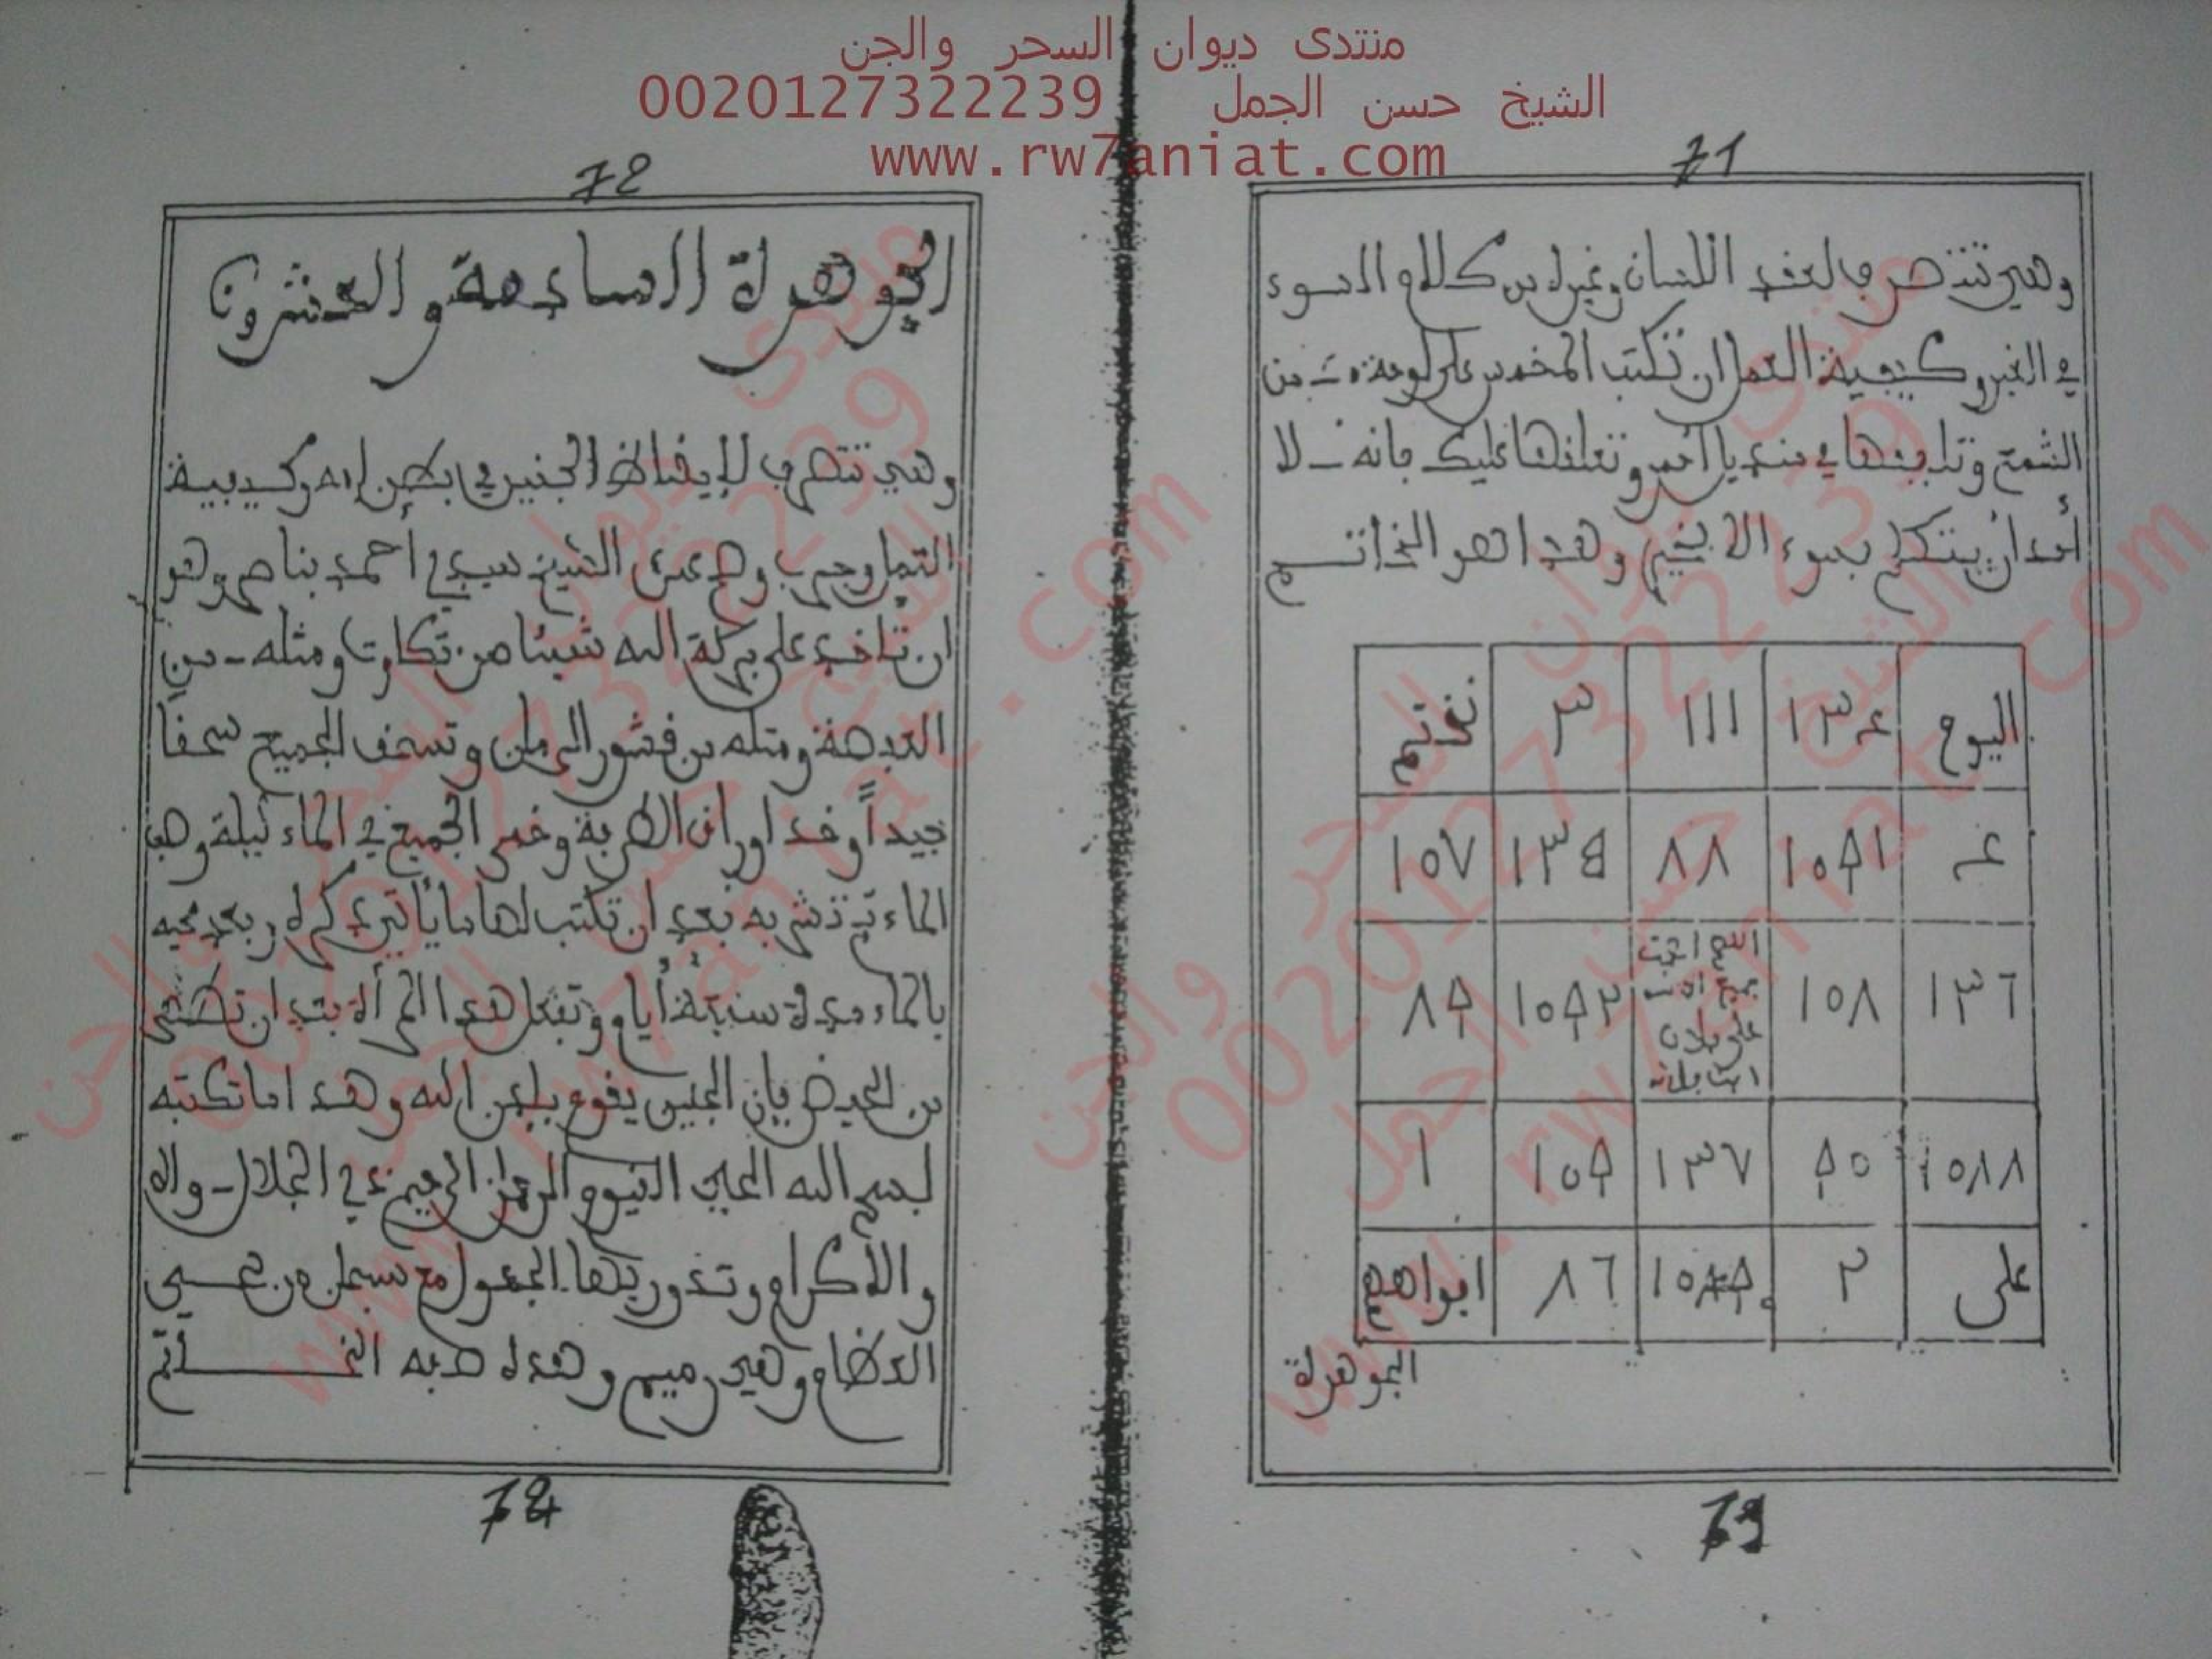 منتدى ديوان السحر والجن
الشيخ حسن الجمل 0020127322239
www.rw7aniat.com
71
وهي تتصرف لعقد اللسان وغيره من كلام السوء
في الغير وكيفية العمل ان تكتب المخمس على لوحة من
الشمع وتدا في منديل أحمر وتعلقها عليك فانه لا
أحد أن يتكلم بسوء الا بخير وهذا هو الخاتم
اليوم ١٣٤ ١١١ ٣ نختم
٤ ١٥٩١ ٨٨ ١٣٥ ١٥٧
١٣٦ ١٥٨ ٨٩
على فلان
١٥٨٨ ٩٥ ١٣٧ ١٥٩ ١
على ٢ ٨٦ افواههم
الجوهرة
79
72
الجوهرة السادسة والعشرون
وهي تتصرف لإيقاظ الجنين في بطن امه وكيفية
العمل وجرب وصح عن الشيخ سيدي أحمد بناصر وهو
ان تأخذ على بركة الله شيئا من تكاوت ومثله من
العبصة ومثله من قشور الرمان وتسحق الجميع سحقاً
جيداً وخذ اوراق الطرفة وخمر الجميع في الماء ليلة وصف
الماء ثم تشربه بعد ان تكتب لها ما يأتي ذكره وبعد محيه
بالماء مدة سبعة أيام وتفعل هذا المرأة بعد ان تطهر
من الحيض فإن الجنين يقوم بإذن الله وهذا ما تكتبه
بسم الله الحي القيوم الرحمان الرحيم ذي الجلال
والاكرام وتذور بكها الجدول مع سبحان من يحيي
العظام وهي رميم وهذه صفة الخاتم
72